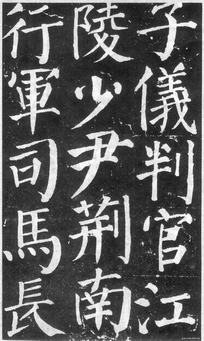 子儀判官江
陵少尹荆南
行軍司馬長